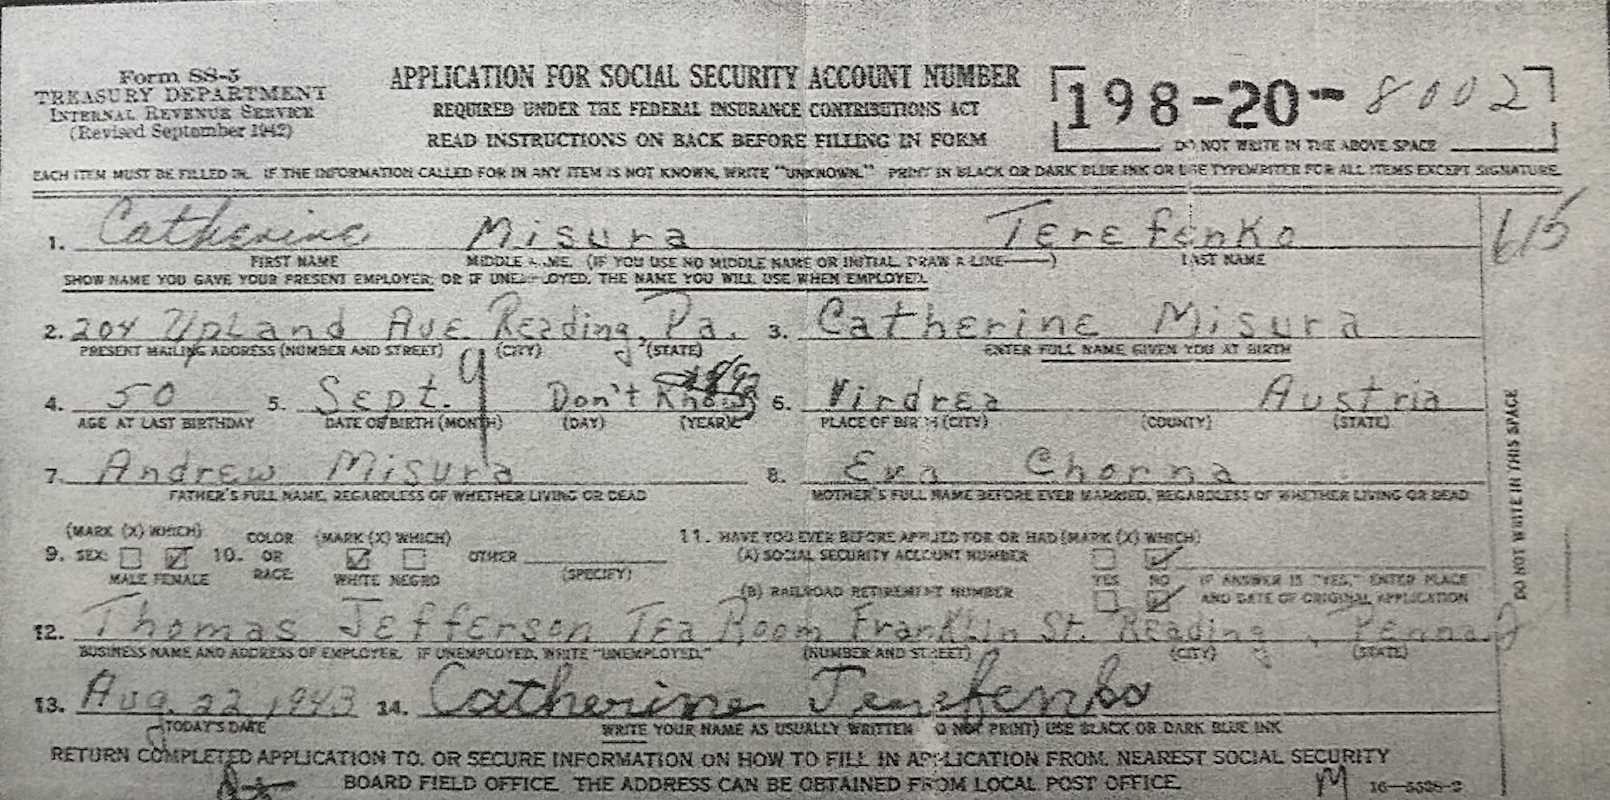 Form SS-5
TREASURY DEPARTMENT
INTERNAL REVENUE SERVICE
(Revised September 1942)
APPLICATION FOR SOCIAL SECURITY ACCOUNT NUMBER
REQUIRED UNDER THE FEDERAL INSURANCE CONTRIBUTIONS ACT
READ INSTRUCTIONS ON BACK BEFORE FILLING IN FORM
198-20-8002
DO NOT WRITE IN THE ABOVE SPACE
EACH ITEM MUST BE FILLED IN. IF THE INFORMATION CALLED FOR IN ANY ITEM IS NOT KNOWN, WRITE "UNKNOWN." PRINT IN BLACK OR DARK BLUE INK OR USE TYPEWRITER FOR ALL ITEMS EXCEPT SIGNATURE.
1. Catherine Misura Terefenko
FIRST NAME MIDDLE NAME. (IF YOU USE NO MIDDLE NAME OR INITIAL, DRAW A LINE——) LAST NAME
SHOW NAME YOU GAVE YOUR PRESENT EMPLOYER; OR IF UNEMPLOYED, THE NAME YOU WILL USE WHEN EMPLOYED.
2. 204 Upland Ave. Reading, Pa. 3. Catherine Misura
PRESENT MAILING ADDRESS (NUMBER AND STREET) (CITY) (STATE) ENTER FULL NAME GIVEN YOU AT BIRTH
4. 50 5. Sept. 9 Don't Know 6. Virdrea Austria
AGE AT LAST BIRTHDAY DATE OF BIRTH (MONTH) (DAY) (YEAR) PLACE OF BIRTH (CITY) (COUNTY) (STATE)
7. Andrew Misura 8. Eva Chorna
FATHER'S FULL NAME, REGARDLESS OF WHETHER LIVING OR DEAD MOTHER'S FULL NAME BEFORE EVER MARRIED, REGARDLESS OF WHETHER LIVING OR DEAD
(MARK (X) WHICH) COLOR (MARK (X) WHICH) 11. HAVE YOU EVER BEFORE APPLIED FOR OR HAD (MARK (X) WHICH)
9. SEX: 10. OR OTHER (A) SOCIAL SECURITY ACCOUNT NUMBER
MALE FEMALE RACE: WHITE NEGRO (SPECIFY) YES NO IF ANSWER IS "YES," ENTER PLACE
(B) RAILROAD RETIREMENT NUMBER AND DATE OF ORIGINAL APPLICATION
12. Thomas Jefferson Tea Room Franklin St. Reading, Penna
BUSINESS NAME AND ADDRESS OF EMPLOYER. IF UNEMPLOYED, WRITE "UNEMPLOYED." (NUMBER AND STREET) (CITY) (STATE)
13. Aug. 22, 1943 14. Catherine Terefenko
TODAY'S DATE WRITE YOUR NAME AS USUALLY WRITTEN (DO NOT PRINT) USE BLACK OR DARK BLUE INK
RETURN COMPLETED APPLICATION TO, OR SECURE INFORMATION ON HOW TO FILL IN APPLICATION FROM, NEAREST SOCIAL SECURITY
BOARD FIELD OFFICE. THE ADDRESS CAN BE OBTAINED FROM LOCAL POST OFFICE.
DO NOT WRITE IN THIS SPACE